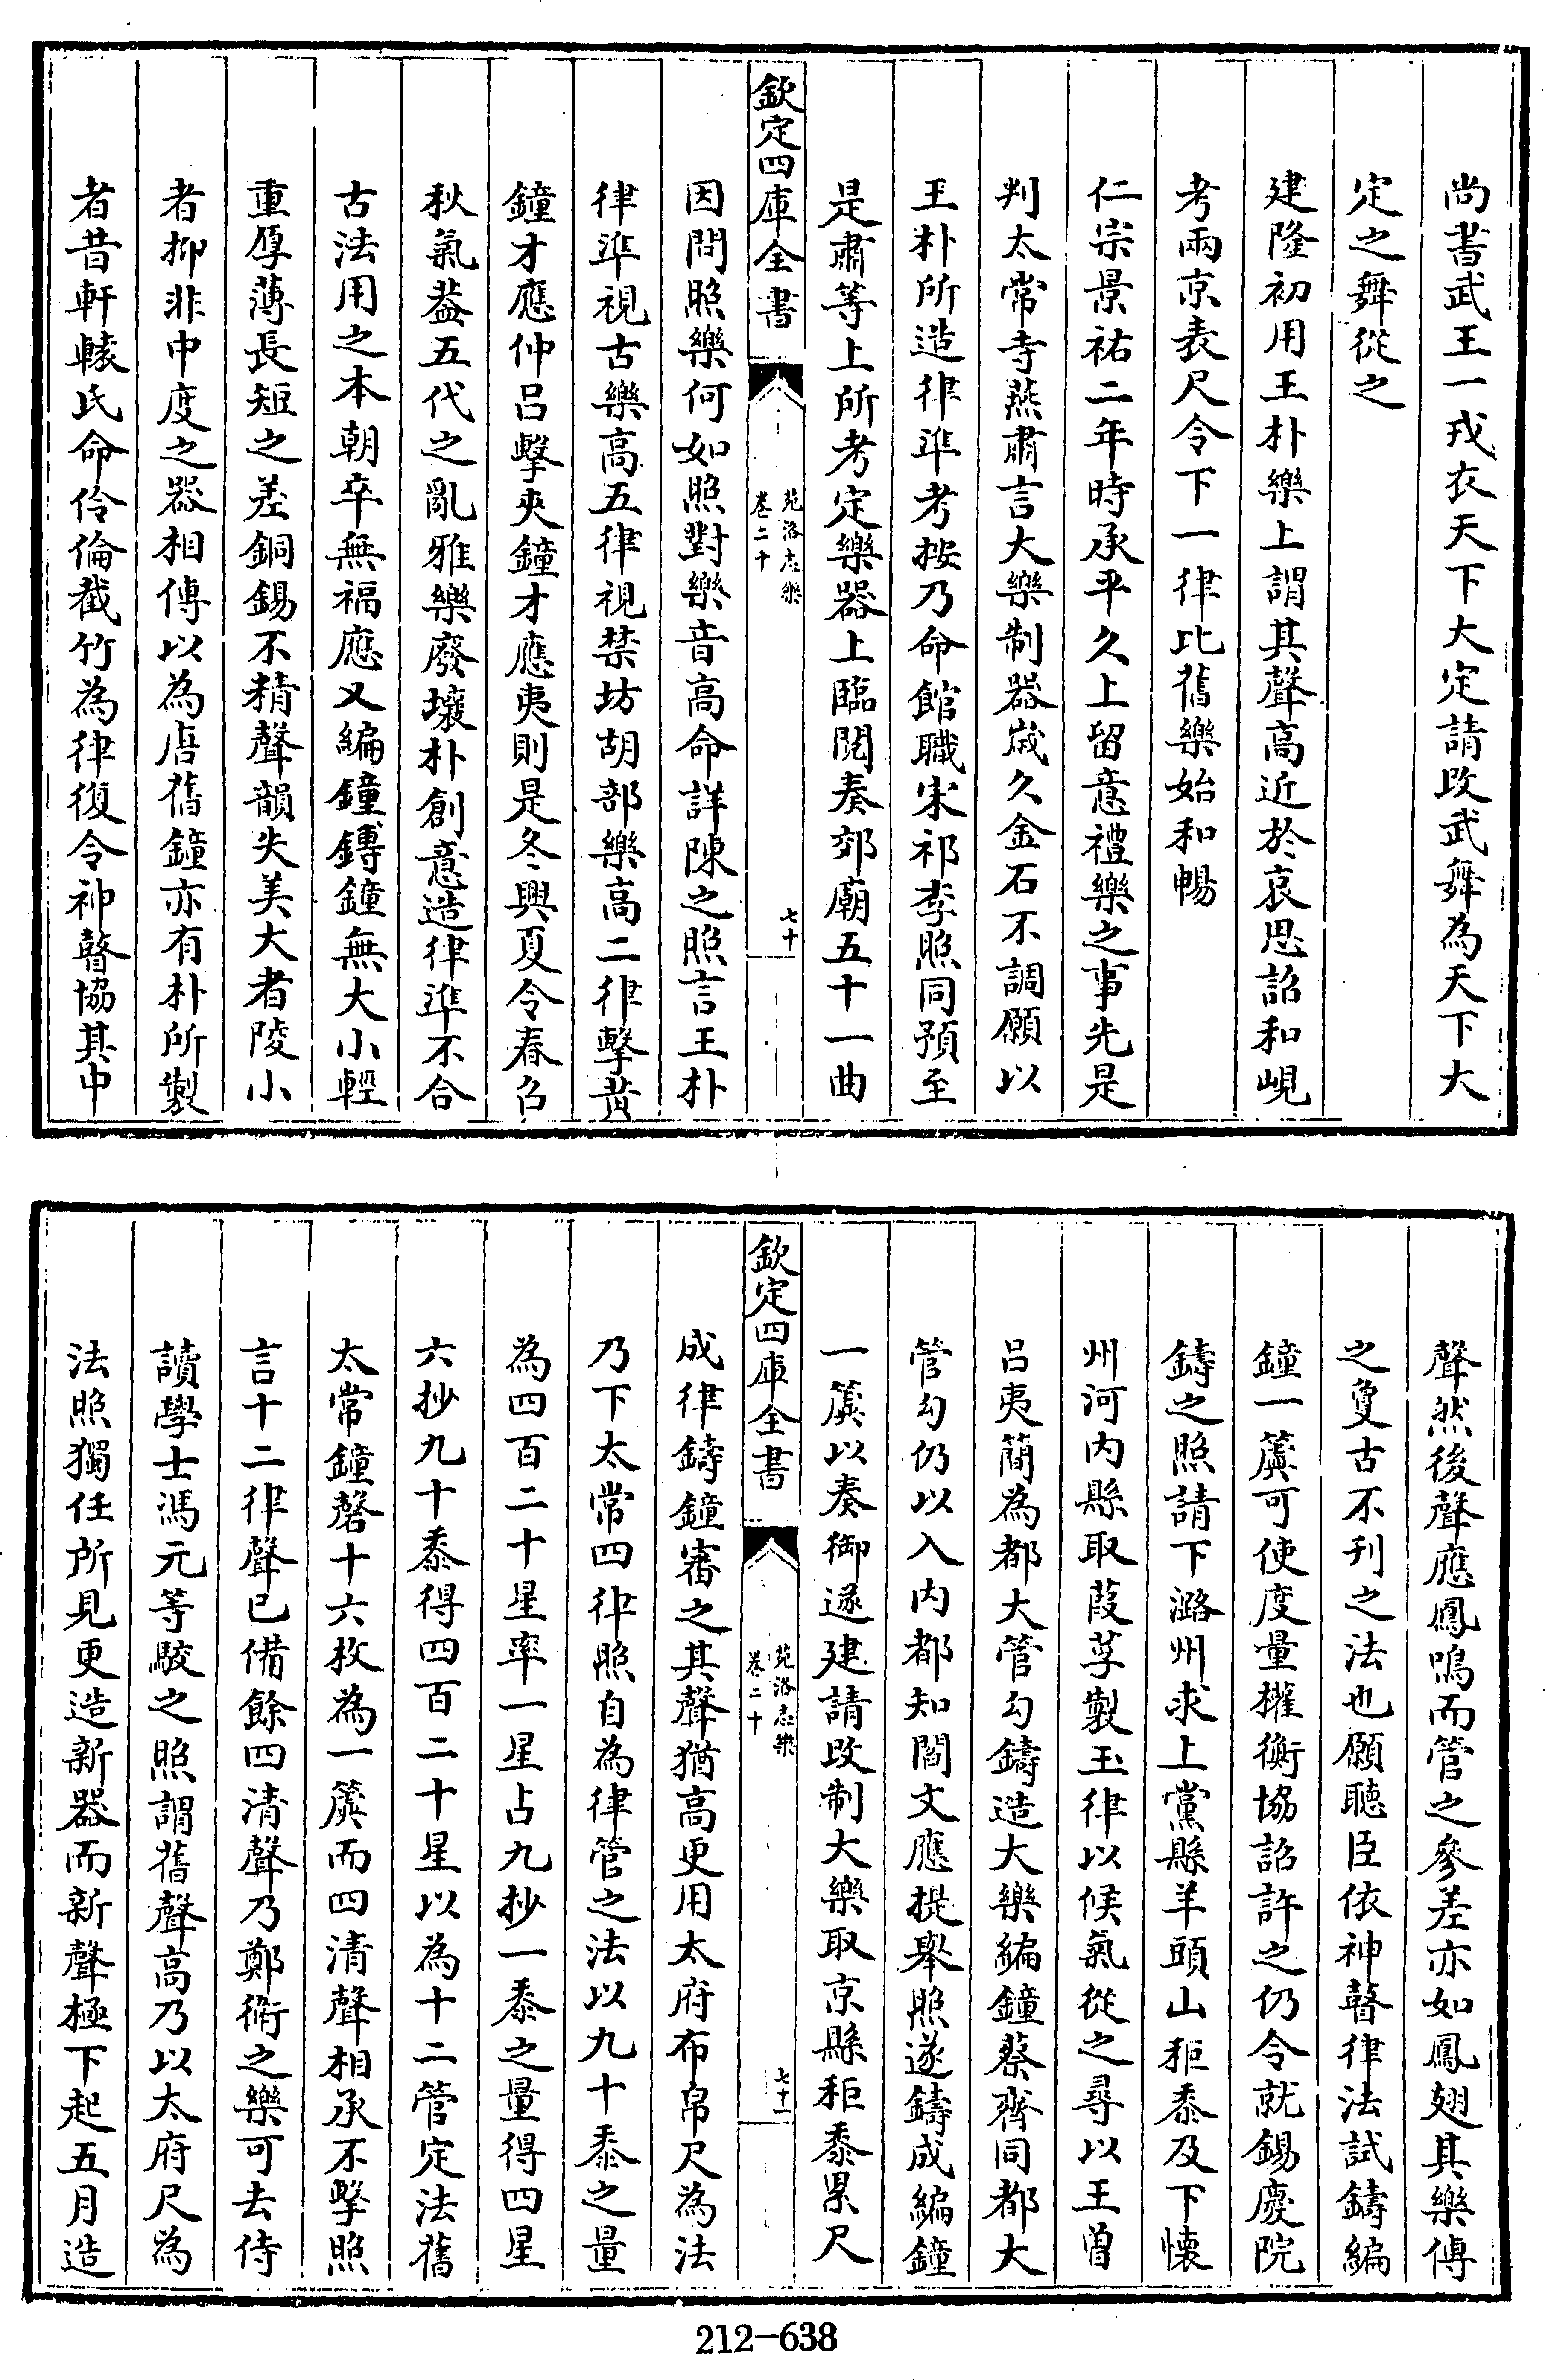 尚書武王一戎衣天下大定請改武舞為天下大
定之舞從之
建隆初用王朴樂上謂其聲高近於哀思詔和峴
考兩京表尺令下一律比舊樂始和暢
仁宗景祐二年時承平久上留意禮樂之事先是
判太常寺燕肅言大樂制器歲久金石不調願以
王朴所造律準考按乃命館職宋祁李照同預至
是肅等上所考定樂器上臨閱奏郊廟五十一曲
欽定四庫全書
苑洛志樂
卷二十
七十
因問照樂何如照對樂音高命詳陳之照言王朴
律準視古樂高五律視禁坊胡部樂高二律擊黃
鐘才應仲呂擊夾鐘才應夷則是冬興夏令春召
秋氣葢五代之亂雅樂廢壞朴創意造律準不合
古法用之本朝卒無福應又編鐘鎛鐘無大小輕
重厚薄長短之差銅錫不精聲韻失美大者陵小
者抑非中度之器相傳以為唐舊鐘亦有朴所製
者昔軒轅氏命伶倫截竹為律復令神瞽協其中
聲然後聲應鳳鳴而管之參差亦如鳳翅其樂傳
之夐古不刋之法也願聽臣依神瞽律法試鑄編
鐘一簴可使度量權衡協詔許之仍令就錫慶院
鑄之照請下潞州求上黨縣羊頭山秬黍及下懷
州河內縣取葭莩製玉律以候氣從之尋以王曾
呂夷簡為都大管勾鑄造大樂編鐘蔡齊同都大
管勾仍以入內都知閻文應提舉照遂鑄成編鐘
一簴以奏御遂建請改制大樂取京縣秬黍累尺
欽定四庫全書
苑洛志樂
卷二十
七十一
成律鑄鐘審之其聲猶高更用太府布帛尺為法
乃下太常四律照自為律管之法以九十黍之量
為四百二十星率一星占九抄一黍之量得四星
六抄九十黍得四百二十星以為十二管定法舊
太常鐘磬十六枚為一簴而四清聲相承不擊照
言十二律聲已備餘四清聲乃鄭衛之樂可去侍
讀學士馮元等駮之照謂舊聲高乃以太府尺為
法照獨任所見更造新器而新聲極下起五月造
212-638